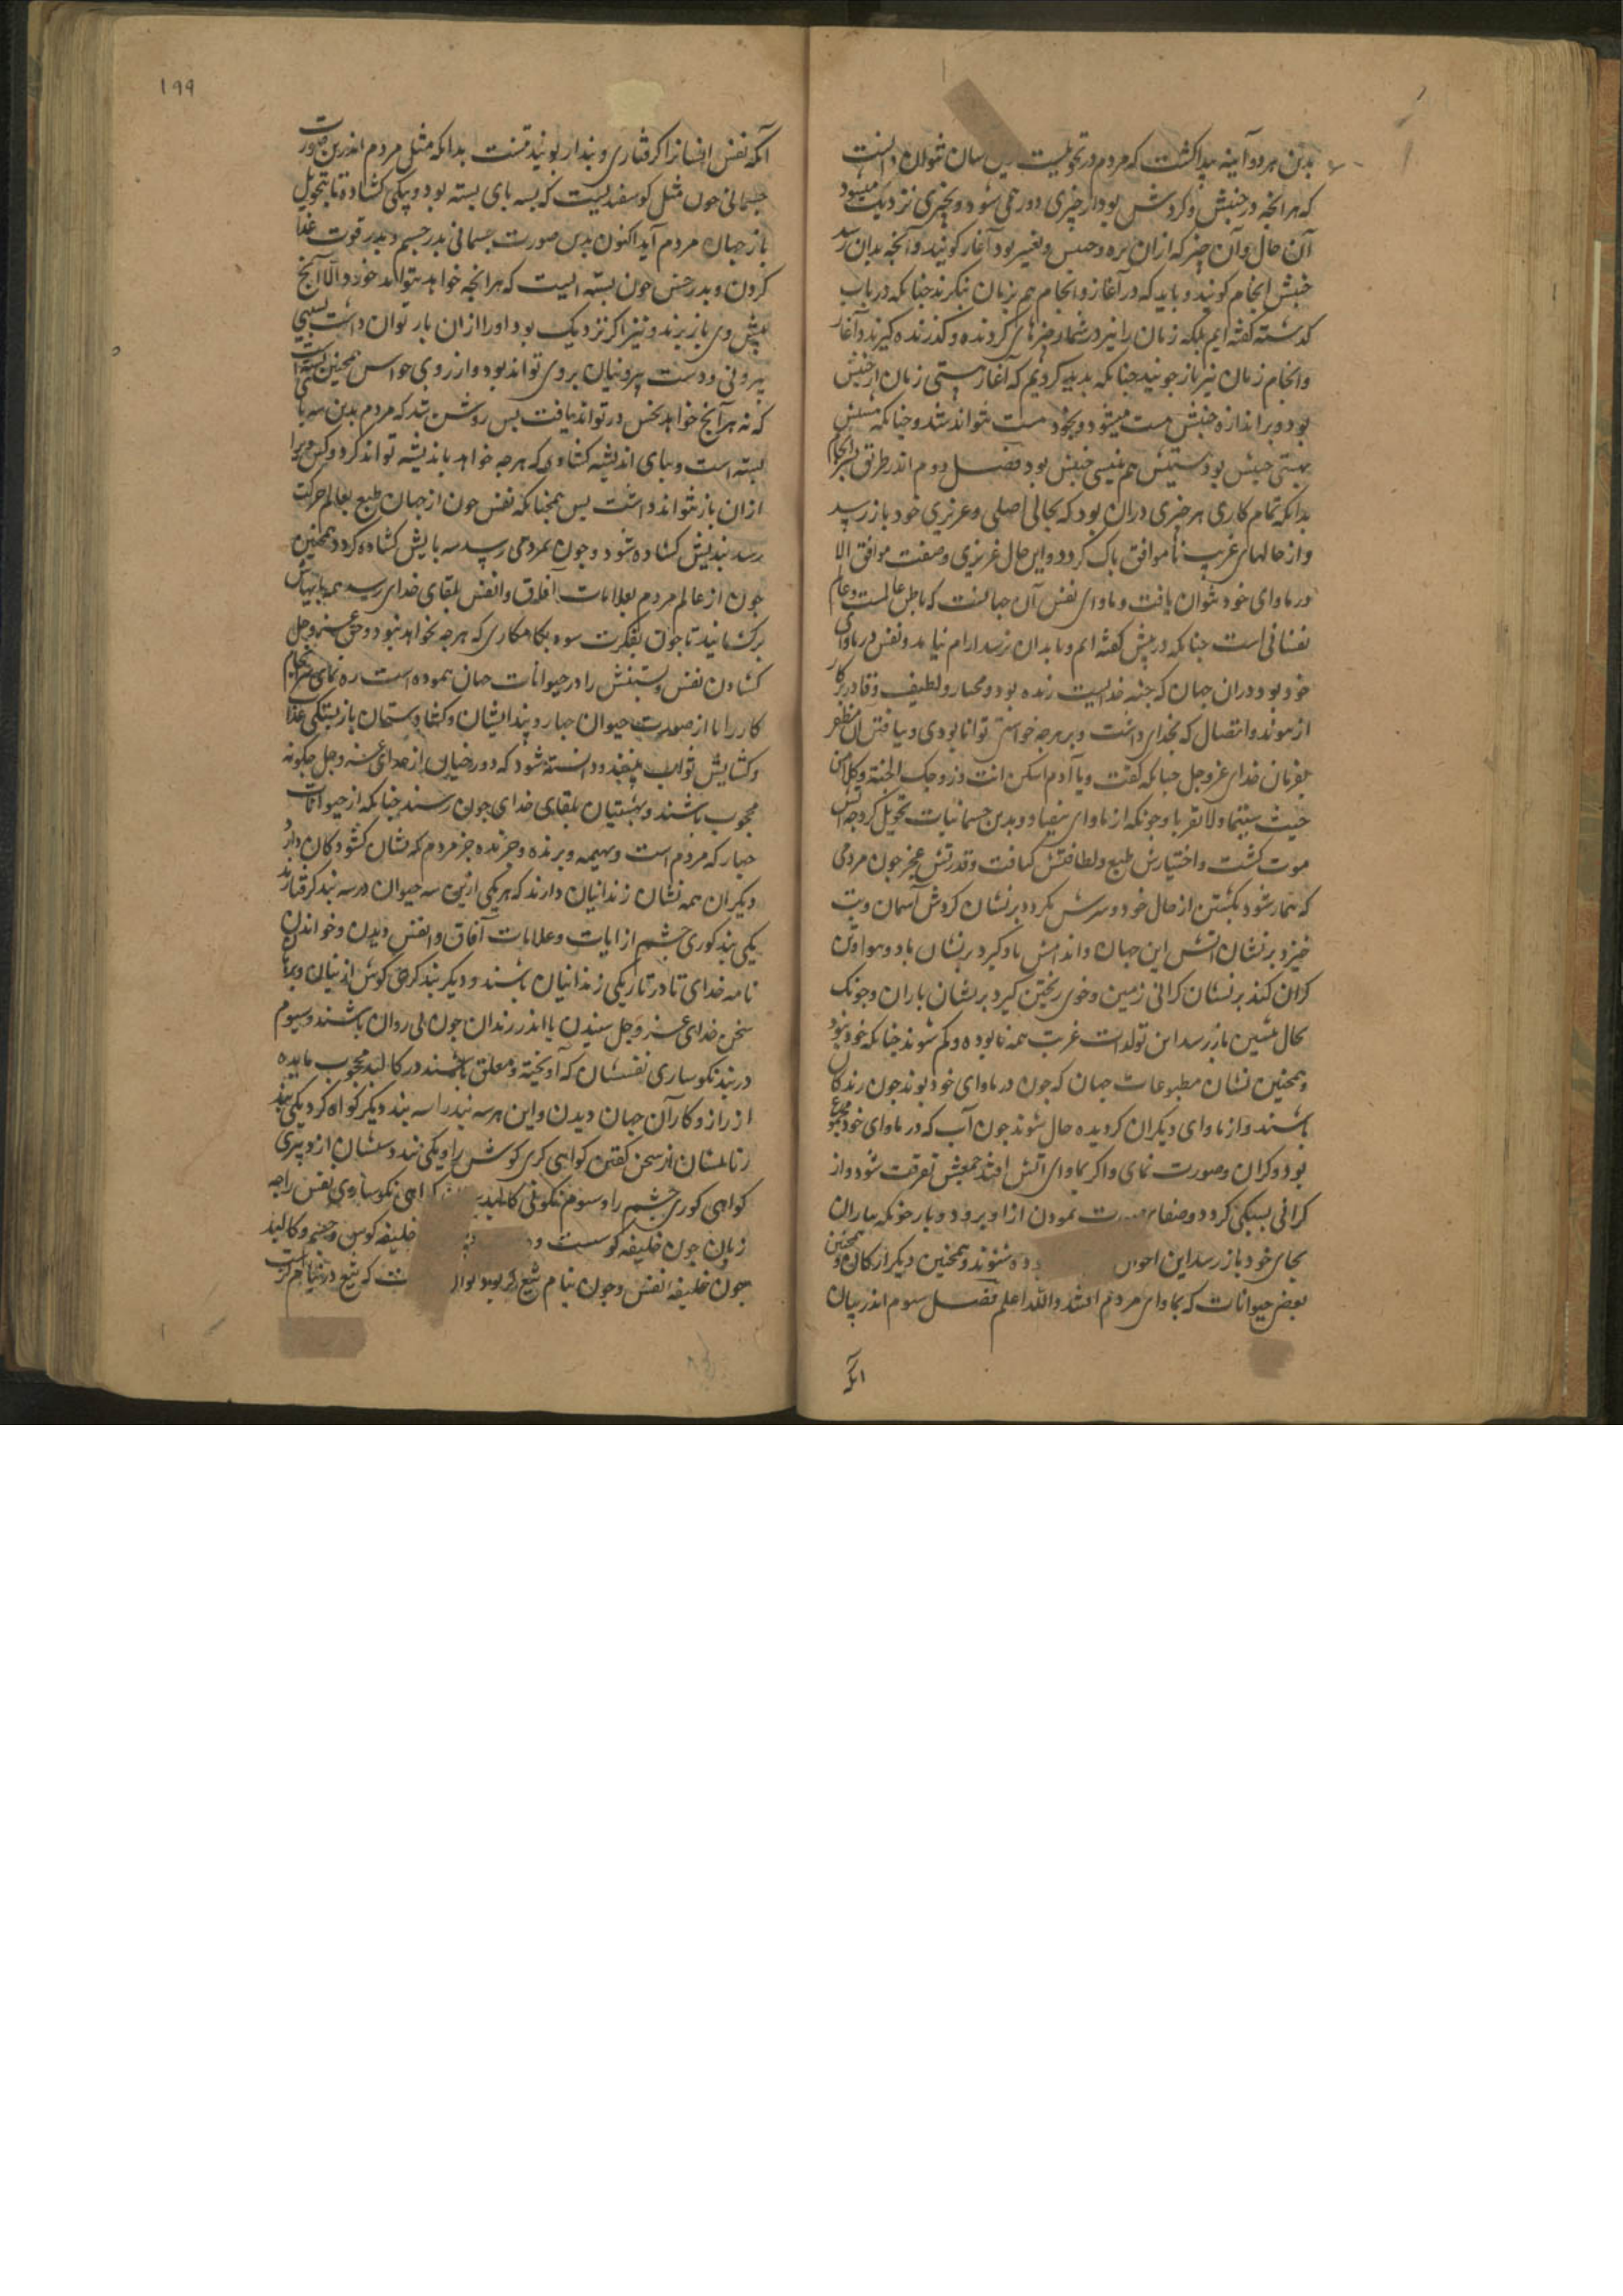 بدین هر دو آینه پیدا گشت که مردم در تحویلست سان نتوان دانست
که هر انچه در جنبش و کردش بود از چیزی دور می شود و بچیزی نزدیک میشود
آن حال و آن چیز که از ان بره و جنبش و تغیر بود آغاز کویند و آنچه بدان رسد
جنبش انجام کویند و باید که در آغاز و انجام هم بزمان ننکرند جنانکه در باب
کذشته کفته ایم بلکه زمان را نیز در شمار چیزهای کردنده و کذرنده کیرند و آغاز
و انجام زمان نیز باز جویند جنانکه بدید کردیم که آغاز هستی زمان از جنبش
بود و بر اندازه جنبش هست میشود و بخود هست نتواند شد و جنانکه هستیش
بهستی جنبش بود نیستیش هم بنیستی جنبش بود فصل دوم اندر طریق سرانجام
بدانکه تمام کاری هر چیزی دران بود که بحالی اصلی و غریزی خود باز رسد
و از حالهای غریب ناموافق پاک کردد و این حال غریزی و صفت موافق الا
در ماوای خود نتوان یافت و ماوای نفس آن جهانست که باطن عالمست و عالم
نفسانی است جنانکه در پیش کفته ایم و تا بدان نرسد ارام نیابد و نفس در ماوای
خود بود دران جهان که جنبه خداییست زنده بود و مختار و لطیف و قادر بر کار
از پیوند و اتصال که بخدای داشت و بر هرچه خواستی توانا بودی و بیافتن ان مظفر
بفرمان خدای عز و جل جنانکه کفت و یا آدم اسکن انت و زوجک الجنة و کلا من
حیث شئتما ولا تقربا و جونکه از ماوای بیفتاد و بدین جسمانیات تحویل کرد حیاتش
موت کشت و اختیارش طبع و لطافتش کثافت و قدرتش عجز جون مردمی
که بیمار شود بکشتن از حال خود و سرش بکردد بر نشان کردش آسمان و تب
خیزد بر نشان اتش این جهان و اندامش باد کیرد بر نشان باد و هوا و تن
کران کند بر نشان کرانی زمین و خوی ریختن کیرد بر نشان باران و جونک
بحال پیشین باز رسد این تولدات غربت همه نابوده و کم شوند جنانکه خود نبود
و همچنین نشان مطبوعات جهان که جون در ماوای خود بوند جون زندکان
باشند و از ماوای دیکران کردیده حال شوند جون آب که در ماوای خود مجموع
بود و کران و صورت نمای و اکر بماوای آتش افتد جمعش تفرقت شود و از
کرانی بسبکی کردد و صفا و صورت نمودن ازا و برود و باز جونکه بباران
بجای خود باز رسد این احوال شوند و همچنین دیکر ارکان و همچنین
بعضی حیوانات که بماوای مردم افتند والله اعلم فصل سوم اندر بیان
آنکه
۱۹۹
آنکه نفس انسانرا کرفتاری و بند از بویند تنست بدانکه مثل مردم اندرین صورت
جسمانی جون مثل کوسفندیست که بسه پای بسته بود و بیکی کشاده تا بتحویل
باز جهان مردم آید اکنون بدین صورت جسمانی بدر جسم و بدر قوت غذا
کردن و بدر حس جون بسته ایست که هر انچه خواهد نتواند خورد الا آنچ
پیش وی باز برند و نیز اکر نزدیک بود او را از ان باز توان داشت بسببی
بیرونی و دست بیرونیان بر وی تواند بود و از روی حواس همچنین بسته است
که نه هر آنچ خواهد بحس در تواند یافت بس روشن شد که مردم بدین سه پا
بسته است و بپای اندیشه کشاده که هرچه خواهد باندیشه تواند کرد و کس ویرا
ازان باز نتواند داشت بس همچنانکه نفس جون از جهان طبع بعالم حرکت
رسد بندیش کشاده شود و جون بمردمی رسد سه پایش کشاده کردد همچنین
جون از عالم مردم بعلامات آفاق و انفس بلقای خدای رسد همه پایهاش
برکشایند تا جون بفکرت سوه بکامکاری که هرچه بخواهد نبود و حق عز و جل
کشادن نفس و بستنش را در حیوانات جهان نموده است ره نمای سرانجام
کار را تا از صورت حیوان جهار و بند ایشان و کشاد و ستمان باز بستکی عذاب
و کشایش ثواب بینند و دانسته شود که دوزخیان از خدای عز و جل جکونه
محجوب باشند و بهشتیان بلقای خدای جون رسند جنانکه از حیوانات
جهار که مردم است و بهیمه و پرنده و خزنده جز مردم که نشان کشودکان دارد
دیکران همه نشان زندانیان دارند که هریکی ازین سه حیوان در سه بند کرفتارند
یکی بند کوری چشم از ایات و علامات آفاق و انفس دیدن و خواندن
نامه خدای تا در تاریکی زندانیان باشند و دیکر بند کری کوش از بیان و برهان
سخن خدای عز و جل شنیدن تا اندر زندان جون بی روان باشند و سیوم
در بند نکوساری نفسشان که آویخته و معلق باشند در کالبد محجوب مانده
از راز و کار آن جهان دیدن و این هر سه بند را سه بند دیکر کواه کرد یکی بند
زبانشان از سخن کفتن کواهی کری کوش را و یکی بند دستشان از دبیری
کواهی کوری چشم را و سوم نکونی کالبد کواهی نکوساری نفس را جه
زبان جون خلیفه کوشست و خلیفه کوش و چشم و کالبد
جون خلیفه نفس و جون بنام که تیغ در نیام